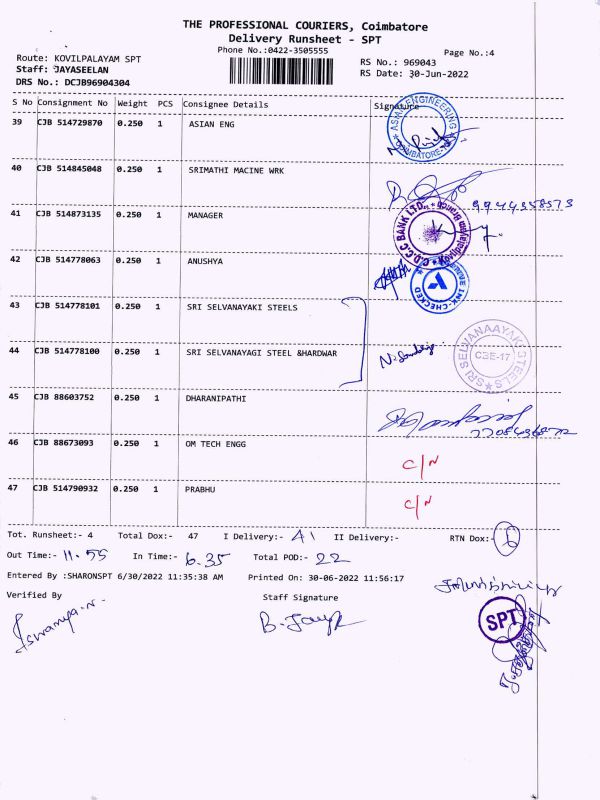 THE PROFESSIONAL COURIERS, Coimbatore
Delivery Runsheet - SPT
Phone No.:0422-3505555
Page No.:4
Route: KOVILPALAYAM SPT
Staff: JAYASEELAN
DRS No.: DCJB96904304
RS No.: 969043
RS Date: 30-Jun-2022
S No Consignment No Weight PCS Consignee Details Signature
39 CJB 514729870 0.250 1 ASIAN ENG
40 CJB 514845048 0.250 1 SRIMATHI MACINE WRK
9944358573
41 CJB 514873135 0.250 1 MANAGER
C.D.C.C BANK LTD.
42 CJB 514778063 0.250 1 ANUSHYA
INK-CHECKED
43 CJB 514778101 0.250 1 SRI SELVANAYAKI STEELS
44 CJB 514778100 0.250 1 SRI SELVANAYAGI STEEL &HARDWAR
SRI SELVANAAYAKI STEELS
CBE-17
45 CJB 88603752 0.250 1 DHARANIPATHI
46 CJB 88673093 0.250 1 OM TECH ENGG C/N
47 CJB 514790932 0.250 1 PRABHU C/N
Tot. Runsheet:- 4 Total Dox:- 47 I Delivery:- 41 II Delivery:- RTN Dox:- 6
Out Time:- 11.55 In Time:- 6.35 Total POD:- 22
Entered By :SHARONSPT 6/30/2022 11:35:38 AM Printed On: 30-06-2022 11:56:17
Verified By Staff Signature
SPT